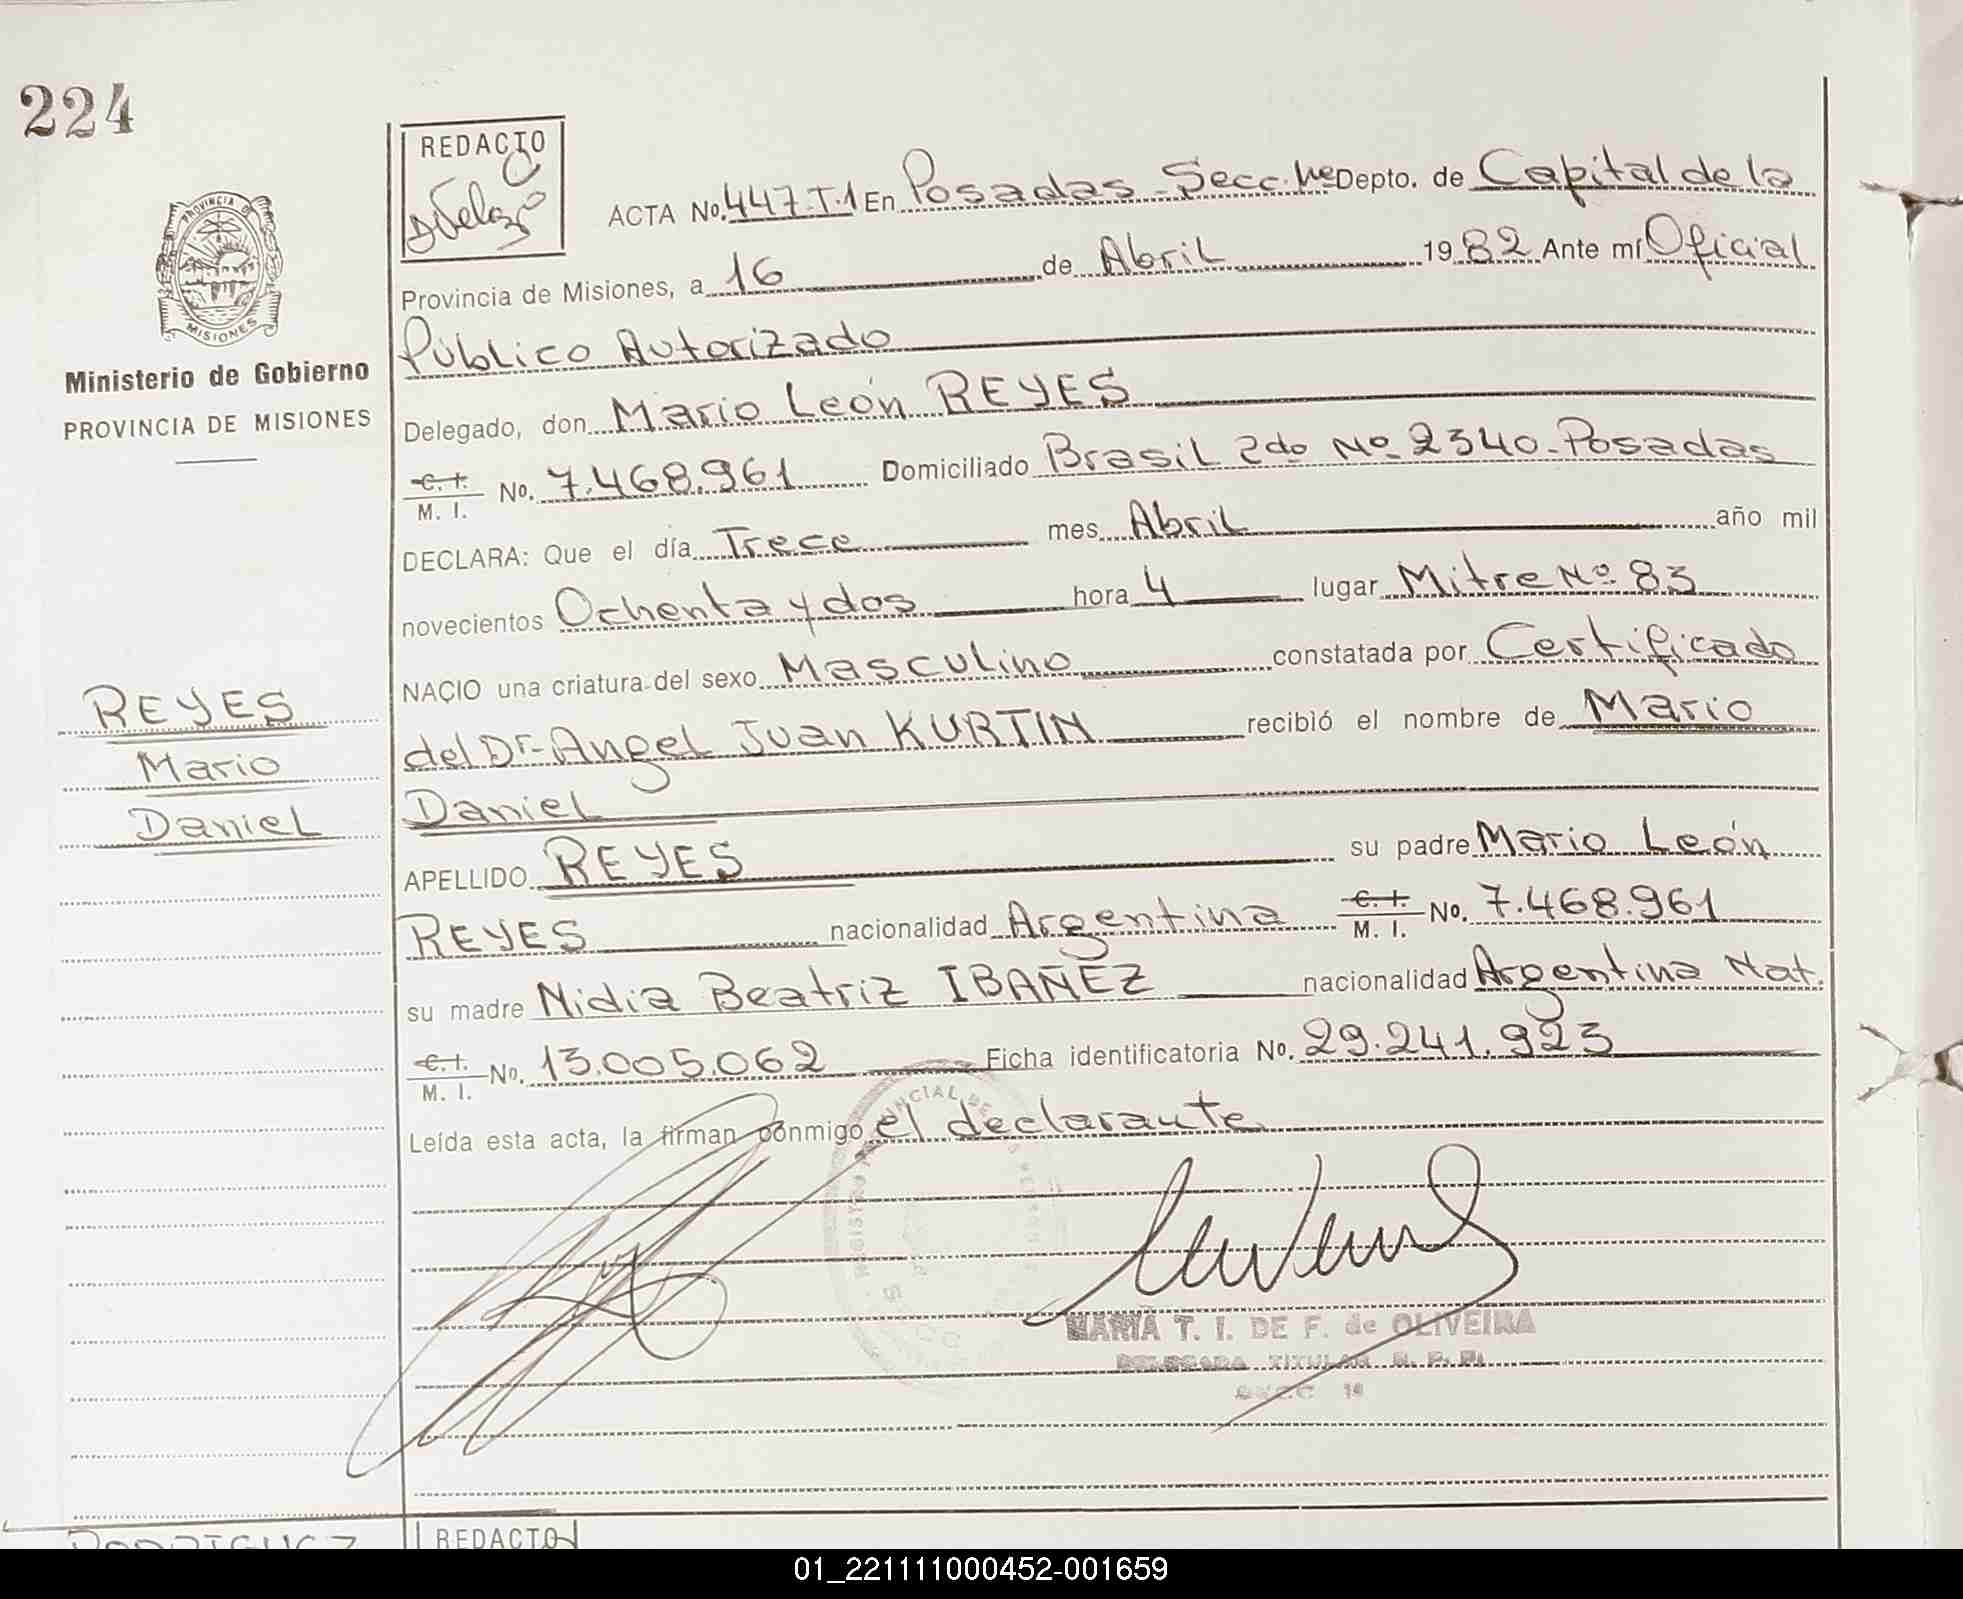 224
REDACTO
ACTA No. 447.T.1 En Posadas Secc. 1ra Depto. de Capital de la
Provincia de Misiones, a 16 de Abril 1982 Ante mí Oficial
Público Autorizado
Delegado, don Mario León REYES
C. I. / M. I. No. 7.468.961 Domiciliado Brasil 2do Nº 2340-Posadas
DECLARA: Que el día Trece mes Abril año mil
novecientos Ochenta y dos hora 4 lugar Mitre Nº 83
NACIO una criatura del sexo Masculino constatada por Certificado
del Dr. Angel Juan KURTIN recibió el nombre de Mario
Daniel
APELLIDO REYES su padre Mario León
REYES nacionalidad Argentina C. I. / M. I. No. 7.468.961
su madre Nidia Beatriz IBAÑEZ nacionalidad Argentina Nat.
C. I. / M. I. No. 13.005.062 Ficha identificatoria No. 29.241.923
Leída esta acta, la firman conmigo el declarante
MARIA T. I. DE F. de OLIVEIRA
DELEGADA TITULAR R. P. P.
SECC 1ª
PROVINCIA DE
MISIONES
Ministerio de Gobierno
PROVINCIA DE MISIONES
REYES
Mario
Daniel
RODRIGUEZ
REDACTO
01_221111000452-001659